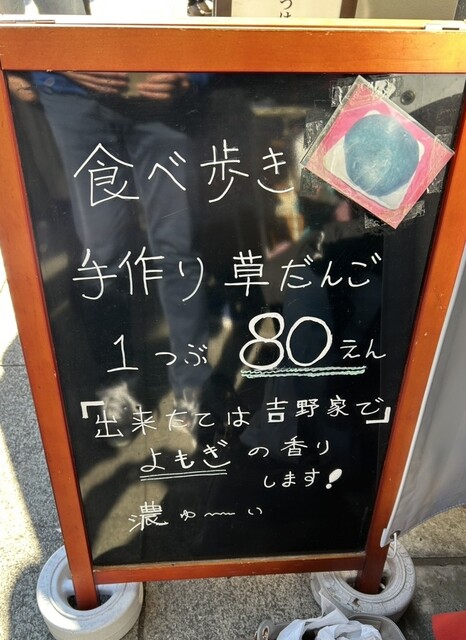 食べ歩き
手作り草だんご
1つぶ 80えん
「出来たては吉野家で」
よもぎの香り
します!
濃ゆ〜い